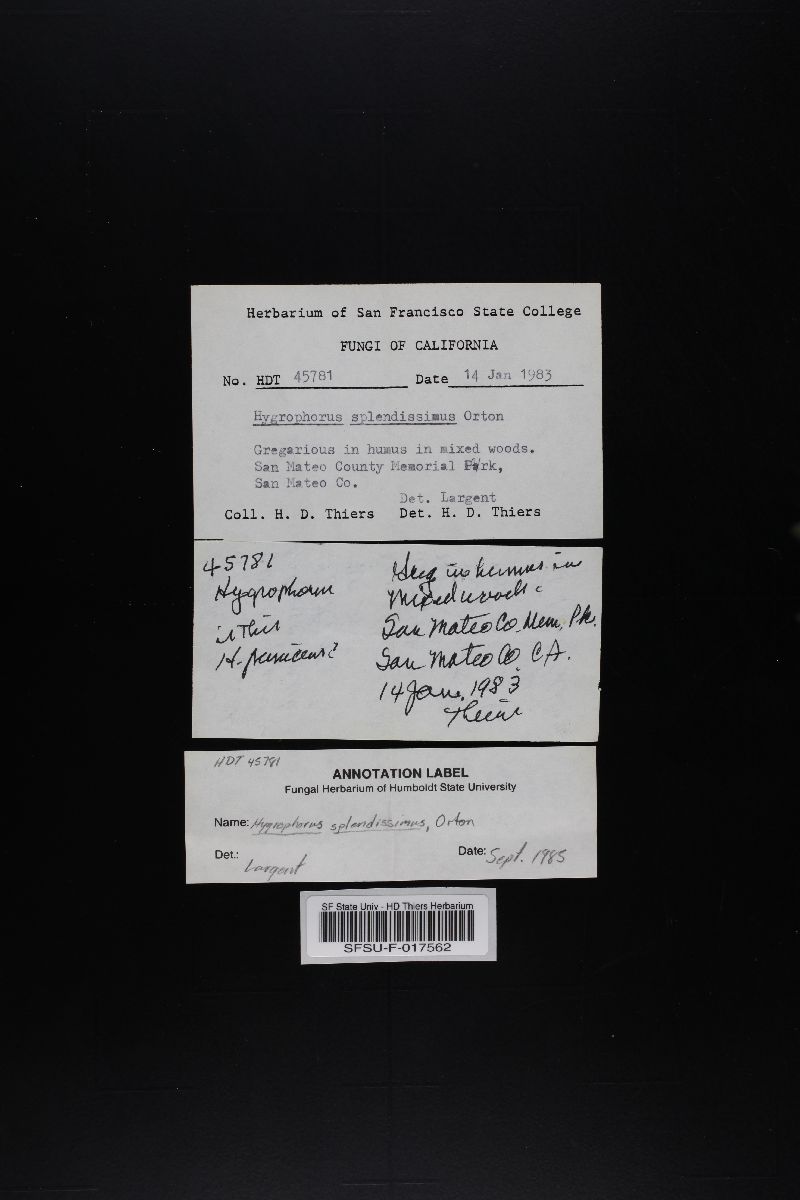 Herbarium of San Francisco State College
FUNGI OF CALIFORNIA
No. HDT 45781 Date 14 Jan 1983
Hygrophorus splendissimus Orton
Gregarious in humus in mixed woods.
San Mateo County Memorial Park,
San Mateo Co.
Det. Largent
Coll. H. D. Thiers Det. H. D. Thiers
45781
Hygrophorus
is this
H. puniceus?
Greg in humus in
Mixed woods.
San Mateo Co. Mem. Pk.
San Mateo Co. CA.
14 Jan. 1983
Thiers
HDT 45781
ANNOTATION LABEL
Fungal Herbarium of Humboldt State University
Name: Hygrophorus splendissimus, Orton
Det.: Largent Date: Sept. 1985
SF State Univ - HD Thiers Herbarium
SFSU-F-017562